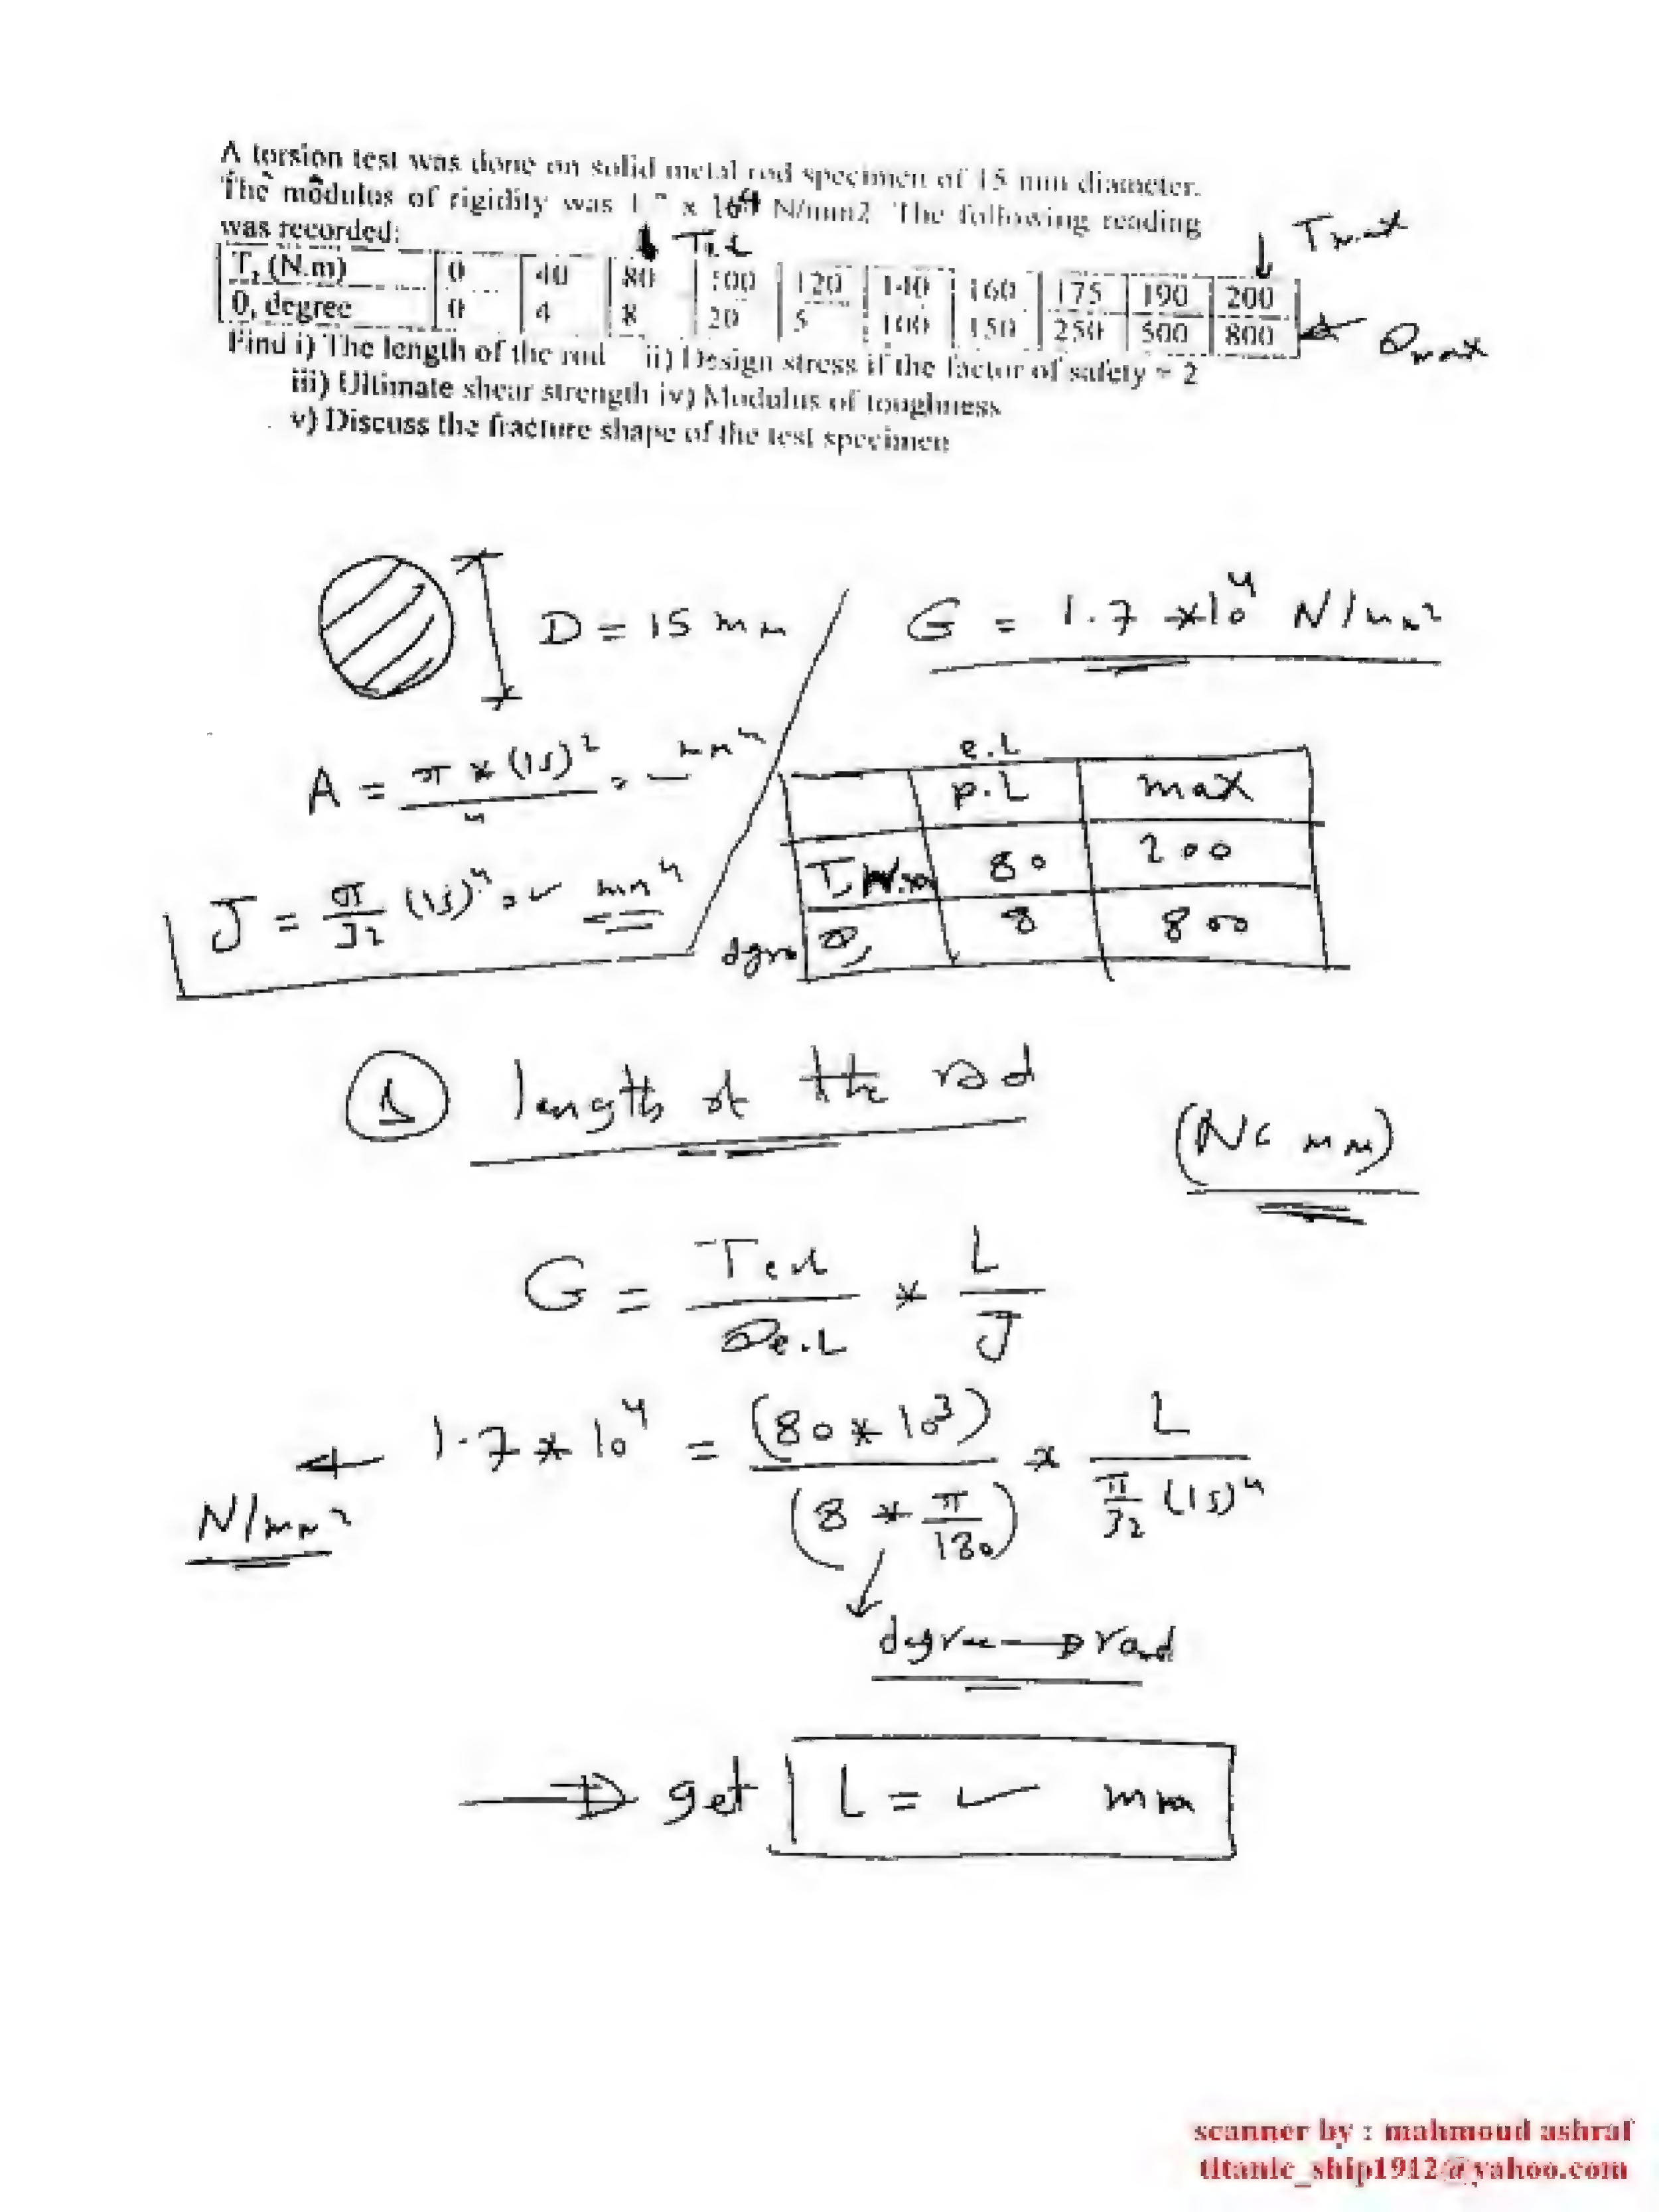 A torsion test was done on solid metal rod specimen of 15 mm diameter.
The modulus of rigidity was 1 x 10^4 N/mm2 The following reading
was recorded:
Tel
Tmax
T, (N.m) 0 40 80 100 120 140 160 175 190 200
θ, degree 0 4 8 20 5 100 150 250 500 800
θmax
Find i) The length of the rod ii) Design stress if the factor of safety = 2
iii) Ultimate shear strength iv) Modulus of toughness
v) Discuss the fracture shape of the test specimen
D = 15 mm
G = 1.7 *10^4 N/mm2
A = π * (15)^2 / 4 = mm^4
J = π/32 (15)^4 = ✓ mm^4
e.L
p.L max
T N.m 80 200
θ 8 800
1 length of the rod
(N, mm)
G = Te.L / θe.L * L / J
1.7 * 10^4 = (80 * 10^3) / (8 * π/180) * L / π/32 (15)^4
N/mm2
degree → rad
⇒ get L = ✓ mm
scanner by : mahmoud ashraf
titanic_ship1912@yahoo.com